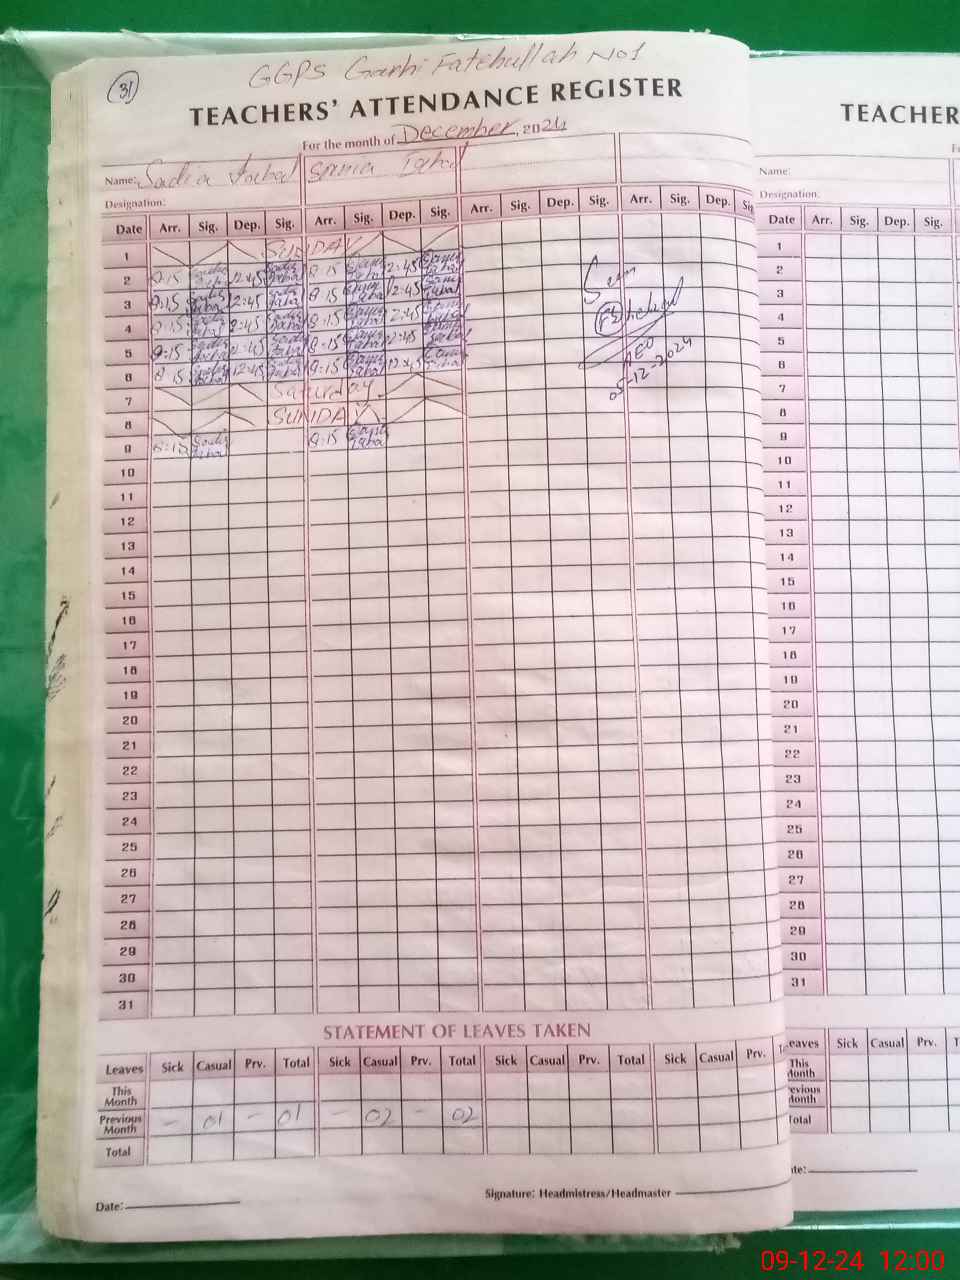 31
GGPS Garhi Fatehullah No 1
TEACHERS' ATTENDANCE REGISTER
For the month of December, 2024
Name: Sadia Iqbal Samia Iqbal
Designation:
Date Arr. Sig. Dep. Sig. Arr. Sig. Dep. Sig. Arr. Sig. Dep. Sig. Arr. Sig. Dep. Sig.
1 SUNDAY
2 8:15 Sadia Iqbal 12:45 Sadia Iqbal 8:15 Samia Iqbal 12:45 Samia Iqbal
3 8:15 Sadia Iqbal 12:45 Sadia Iqbal 8:15 Samia Iqbal 12:45 Samia Iqbal
4 8:15 Sadia Iqbal 12:45 Sadia Iqbal 8:15 Samia Iqbal 12:45 Samia Iqbal
5 8:15 Sadia Iqbal 12:45 Sadia Iqbal 8:15 Samia Iqbal 12:45 Samia Iqbal
6 8:15 Sadia Iqbal 12:45 Sadia Iqbal 8:15 Samia Iqbal 12:45 Samia Iqbal
7 Saturday
8 SUNDAY
9 8:15 Sadia Iqbal 8:15 Samia Iqbal
Seen
AEO
05-12-2024
10
11
12
13
14
15
16
17
18
19
20
21
22
23
24
25
26
27
28
29
30
31
STATEMENT OF LEAVES TAKEN
Leaves Sick Casual Prv. Total Sick Casual Prv. Total Sick Casual Prv. Total Sick Casual Prv.
This Month
Previous Month - 01 - 01 - 02 - 02
Total
Date:
Signature: Headmistress/Headmaster
TEACHER
Name:
Designation:
Date Arr. Sig. Dep. Sig.
1
2
3
4
5
6
7
8
9
10
11
12
13
14
15
16
17
18
19
20
21
22
23
24
25
26
27
28
29
30
31
Leaves Sick Casual Prv.
This Month
Previous Month
Total
09-12-24 12:00